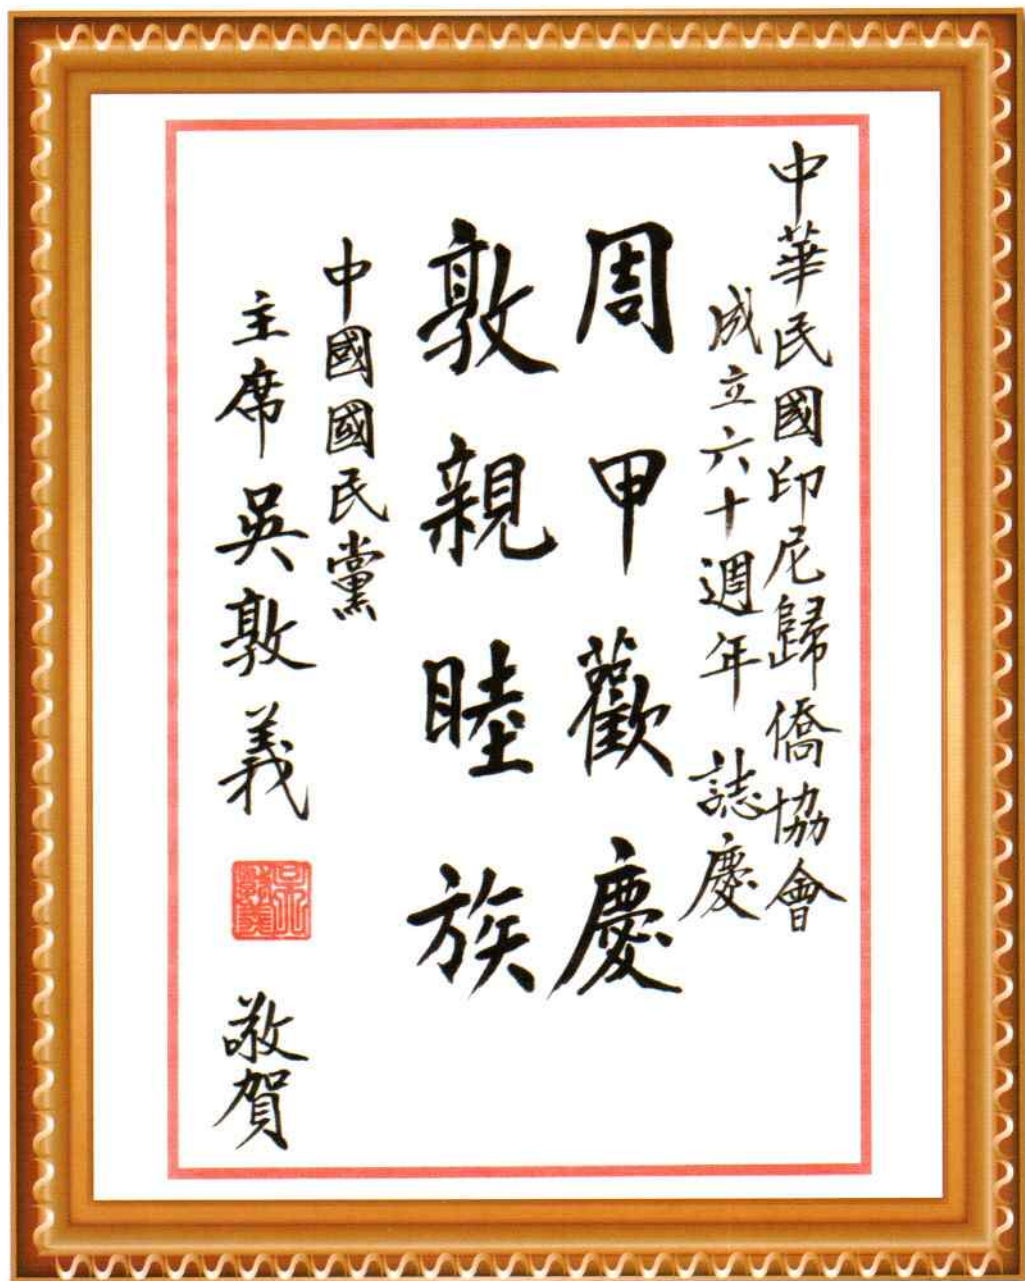 中華民國印尼歸僑協會
成立六十週年 誌慶
周甲歡慶
敦親睦族
中國國民黨
主席吳敦義 吳敦義 敬賀